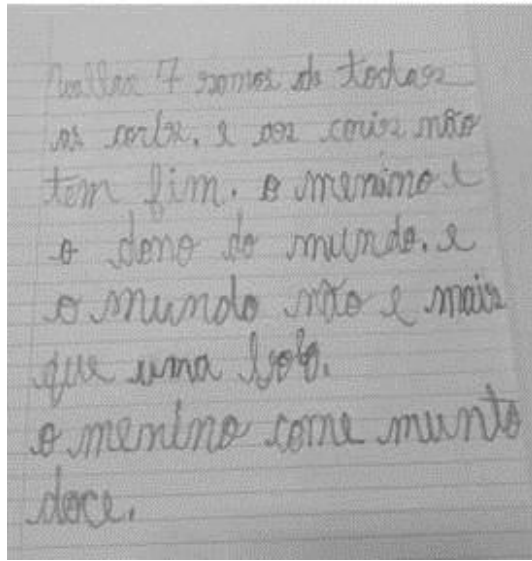 7 somos de todas
as corlx. e as coris não
tem fim. o menino e
o dono do mundo. e
o mundo não e mais
que uma bola.
o menino come munto
doce.